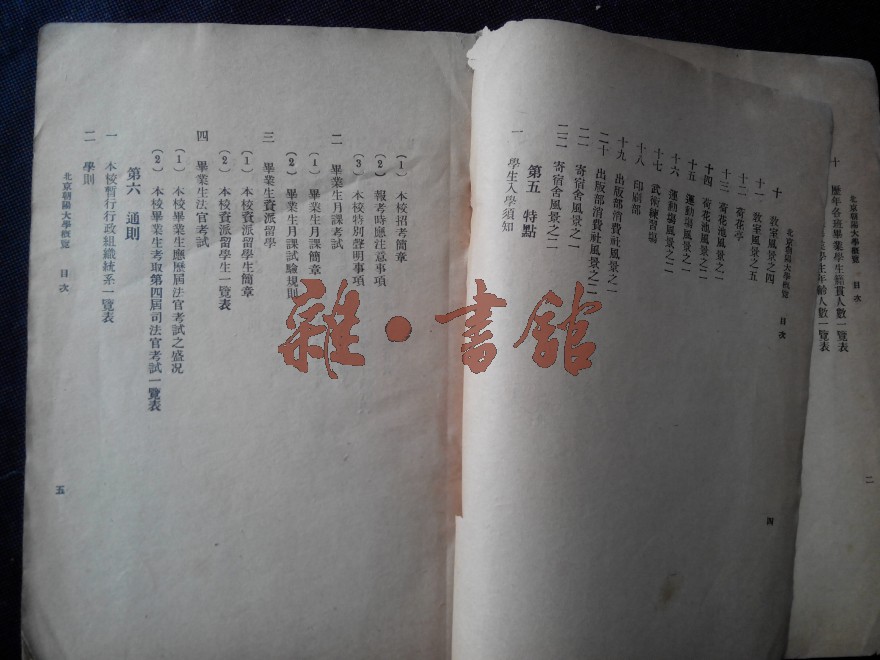 十 歷年各班畢業學生籍貫人數一覽表
學生年齡人數一覽表
北京朝陽大學概覽 目次
二
北京朝陽大學概覽 目次
十 教室風景之四
十一 教室風景之五
十二 荷花亭
十三 荷花池風景之一
十四 荷花池風景之二
十五 運動場風景之一
十六 運動場風景之二
十七 武術練習場
十八 印刷部
十九 出版部消費社風景之一
二十 出版部消費社風景之二
二一 寄宿舍風景之一
二二 寄宿舍風景之二
第五 特點
一 學生入學須知
四
(1) 本校招考簡章
(2) 報考時應注意事項
(3) 本校特別聲明事項
二 畢業生月課考試
(1) 畢業生月課簡章
(2) 畢業生月課試驗規則
三 畢業生資派留學
(1) 本校資派留學生簡章
(2) 本校資派留學生一覽表
四 畢業生法官考試
(1) 本校畢業生應歷屆法官考試之盛況
(2) 本校畢業生考取第四屆司法官考試一覽表
第六 通則
一 本校暫行行政組織統系一覽表
二 學則
北京朝陽大學概覽 目次
五
雜·書館